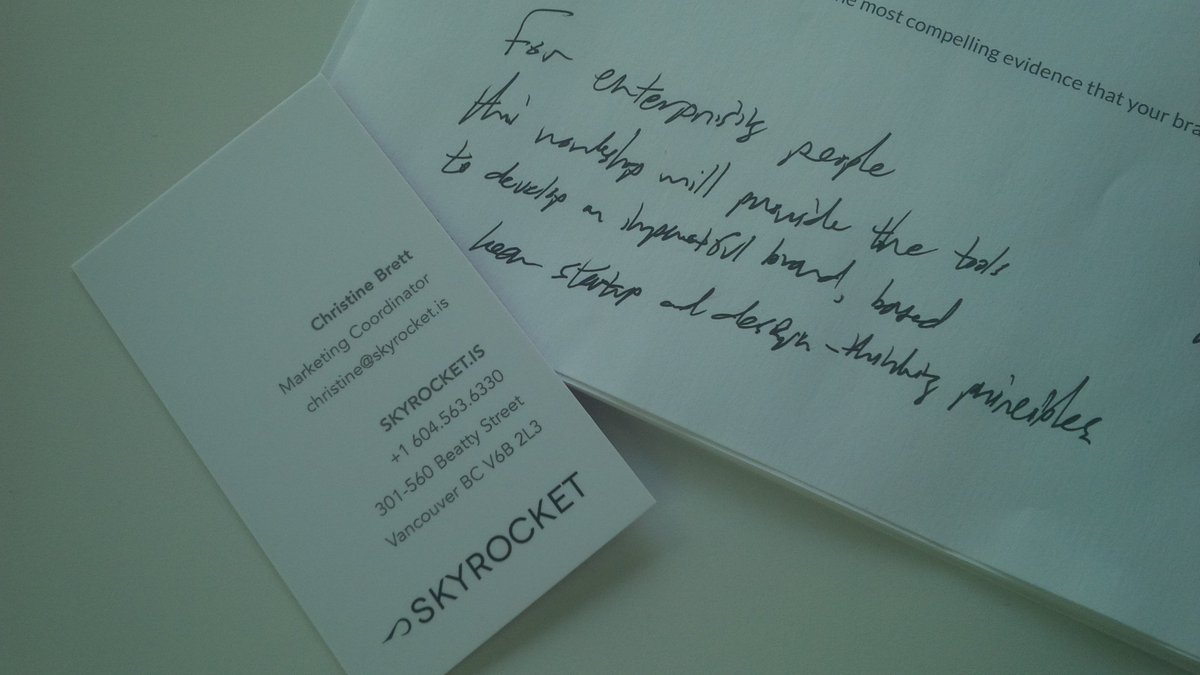 he most compelling evidence that your bra
For
enterprising people
this workshop will provide the tools
to develop an impactful brand, based
lean startup and design-thinking principles
Christine Brett
Marketing Coordinator
christine@skyrocket.is
SKYROCKET.IS
+1 604.563.6330
301-560 Beatty Street
Vancouver BC V6B 2L3
SKYROCKET